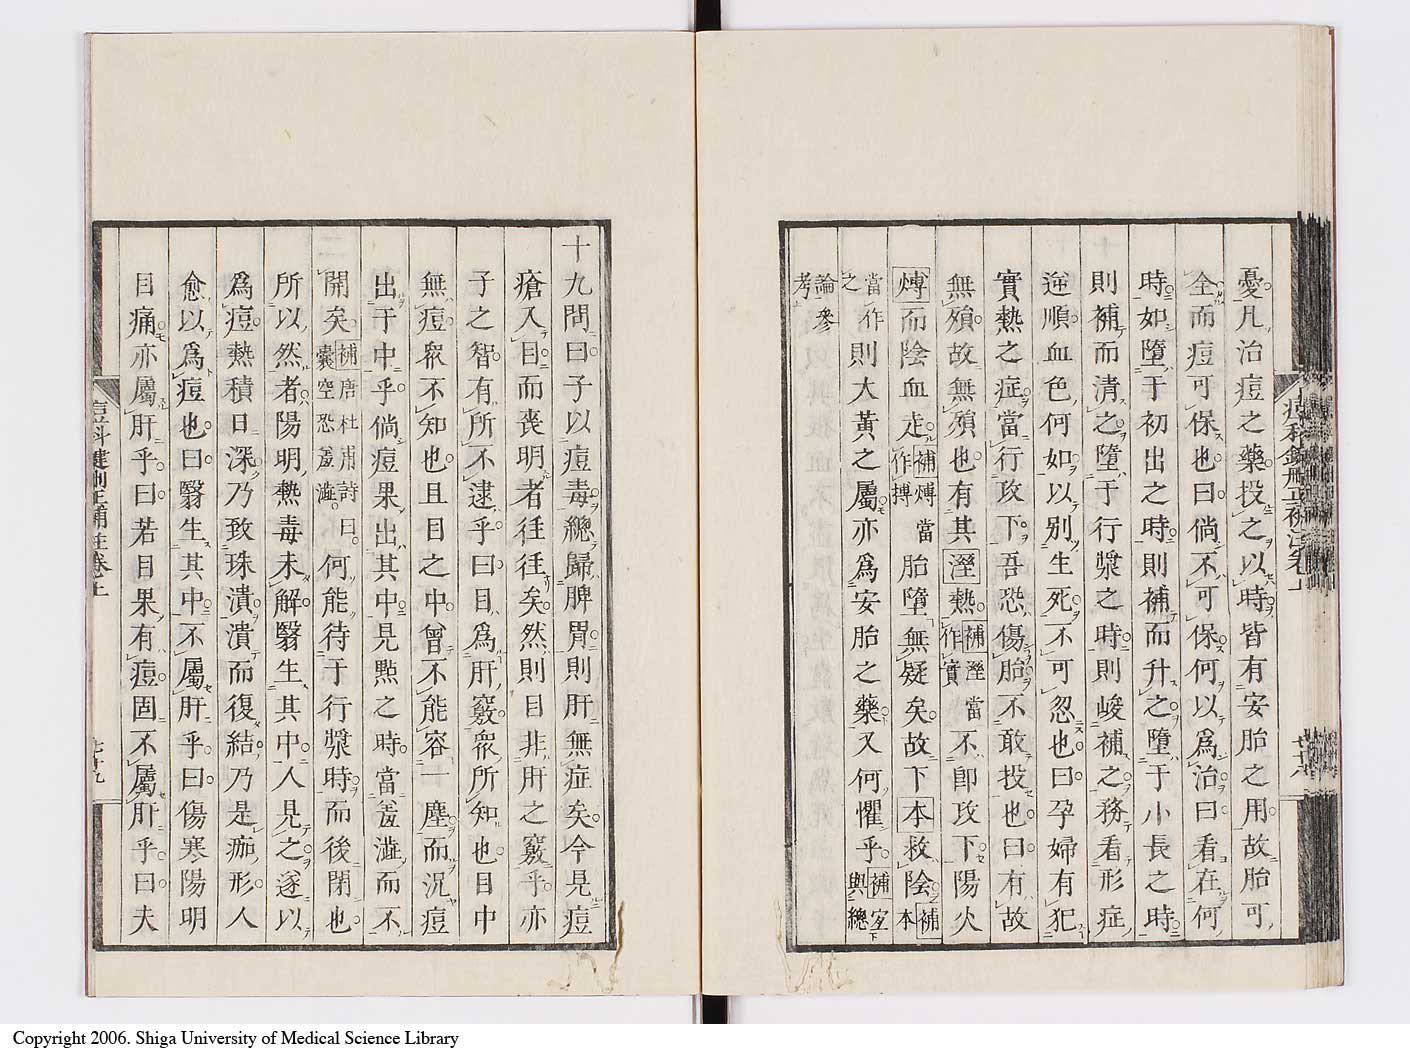 憂凡治痘之藥投之以時皆有安胎之用故胎可
全而痘可保也曰倘不可保何以爲治曰看在何
時如墮于初出之時則補而升之墮于小長之時
則補而清之墮于行漿之時則峻補之務看形症
逆順血色何如以別生死不可忽也曰孕婦有犯
實熱之症當行攻下吾恐傷胎不敢投也曰有故
無殞故無殞也有其溼熱補溼當作實不卽攻下陽火
煿而陰血走補煿當作搏胎墮無疑矣故下本救陰補本
當作之則大黃之屬亦爲安胎之藥又何懼乎補室下與總
論參考
十九問曰子以痘毒總歸脾胃則肝無症矣今見痘
瘡入目而喪明者往往矣然則目非肝之竅乎亦
子之智有所不逮乎曰目爲肝竅衆所知也目中
無痘衆不知也且目之中曾不能容一塵而況痘
出于中乎倘痘果出其中見點之時當羞澁而不
開矣補唐杜甫詩曰囊空恐羞澁何能待于行漿時而後閉也
所以然者陽明熱毒未解翳生其中人見之遂以
爲痘熱積日深乃致珠潰潰而復結乃是痂形人
愈以爲痘也曰翳生其中不屬肝乎曰傷寒陽明
目痛亦屬肝乎曰若目果有痘固不屬肝乎曰夫
痘科鍵刪正補註卷上
七十九
Copyright 2006. Shiga University of Medical Science Library